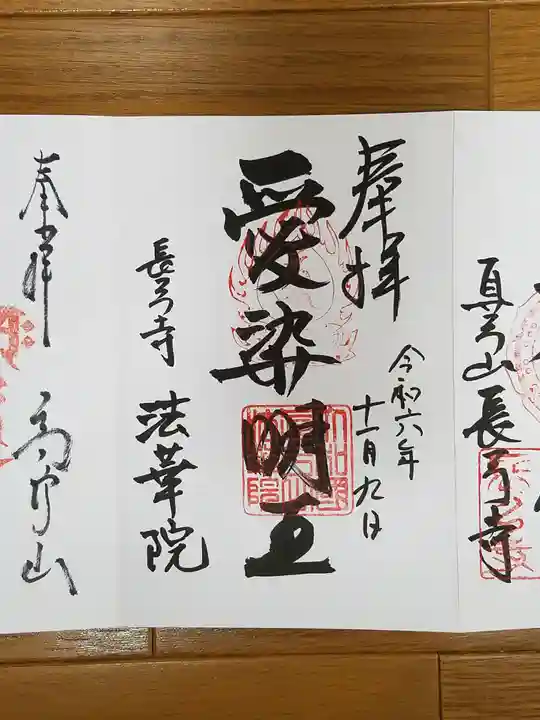 真弓山
長弓寺
奉拝
令和六年
十一月九日
愛染明王
長弓寺
法華院
奉拝